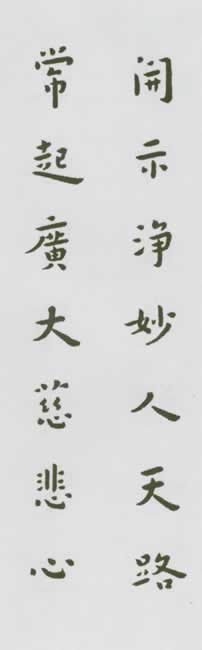 開示淨妙人天路
常起廣大慈悲心